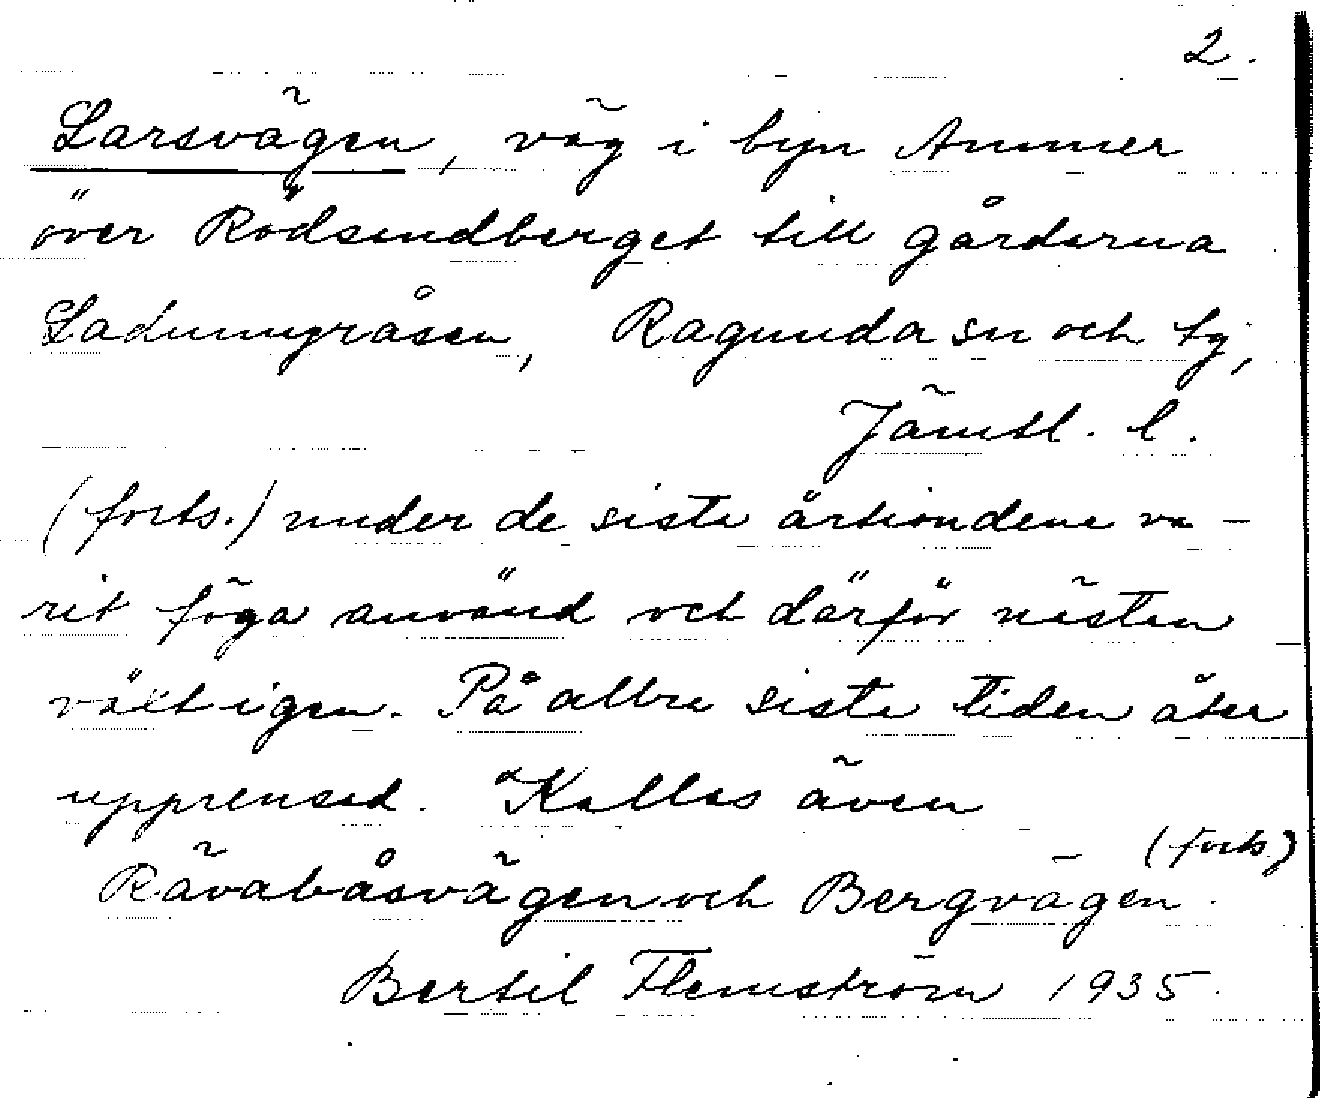 2.
Larsvägen, väg i byn Ammer
över Rödsundberget till gårderna
Ragunda sn och tg,
Jämtl. l.
(forts.) under de siste årtiondene va-
rit föga använd och därför nästen
växt igen. På allre siste tiden åter
upprensad. Kallas även
(forts.)
Rävabåsvägen och Bergvägen.
Bertil Flemström 1935.